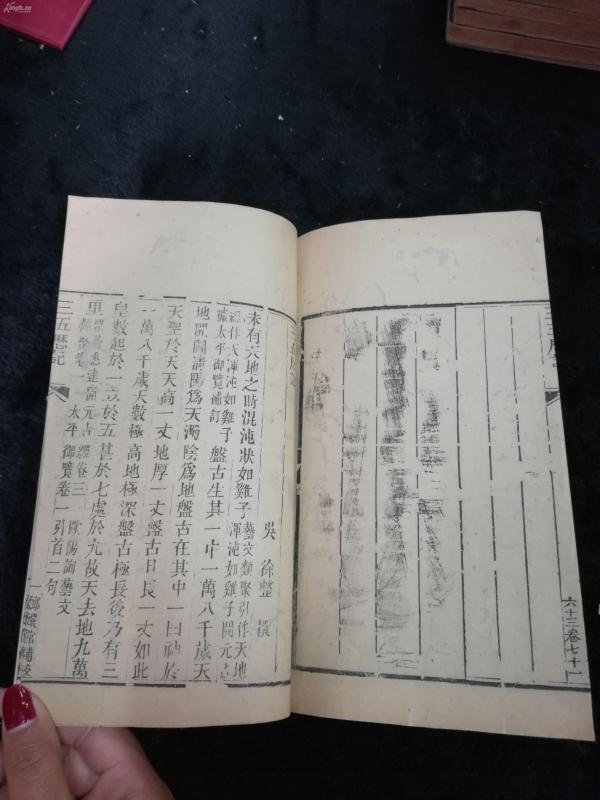 六十三卷七十一
吳 徐整 撰
未有天地之時混沌狀如雞子藝文類聚引作天地渾沌如雞子開元占
經作大渾沌如雞子據太平御覽補訂盤古生其中一萬八千歲天
地開闢清陽爲天濁陰爲地盤古在其中一日神於
天聖於天天高一丈地厚一丈盤古日長一丈如此
一萬八千歲天數極高地極深盤古極長後乃有三
皇數起於一立於五甚於七處於九故天去地九萬
里瞿曇悉達開元占經卷三 歐陽詢藝文類聚卷一 太平御覽卷一引首二句
三五歷記 一 嫏嬛館補校